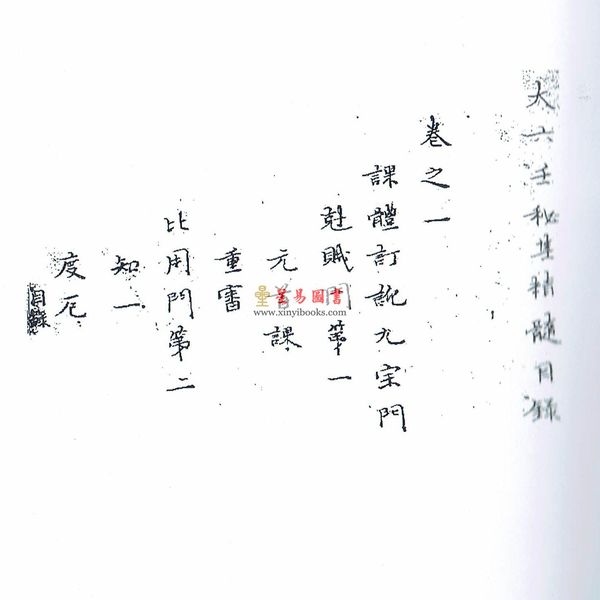 大六壬秘集精髓目錄
卷之一
課體訂訛九宗門
尅賊門第一
元首課
重審
比用門第二
知一
度厄
目錄
星易圖書
www.xinyibooks.com